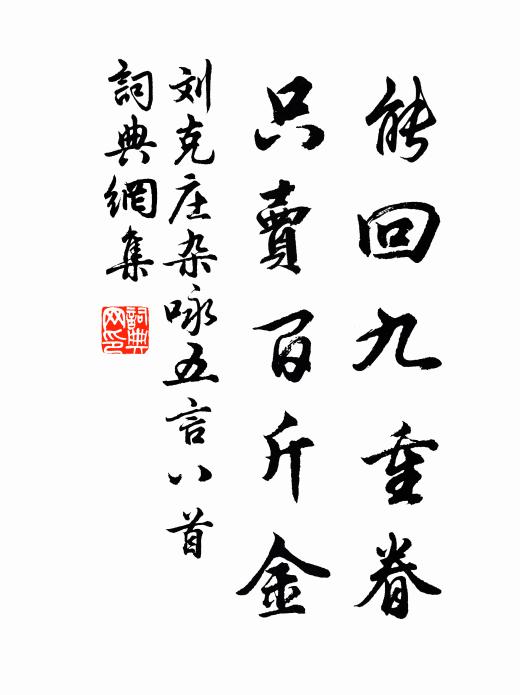 能回九重眷
只賣百斤金
刘克庄杂咏五言八首
詞典網集
詞典网印